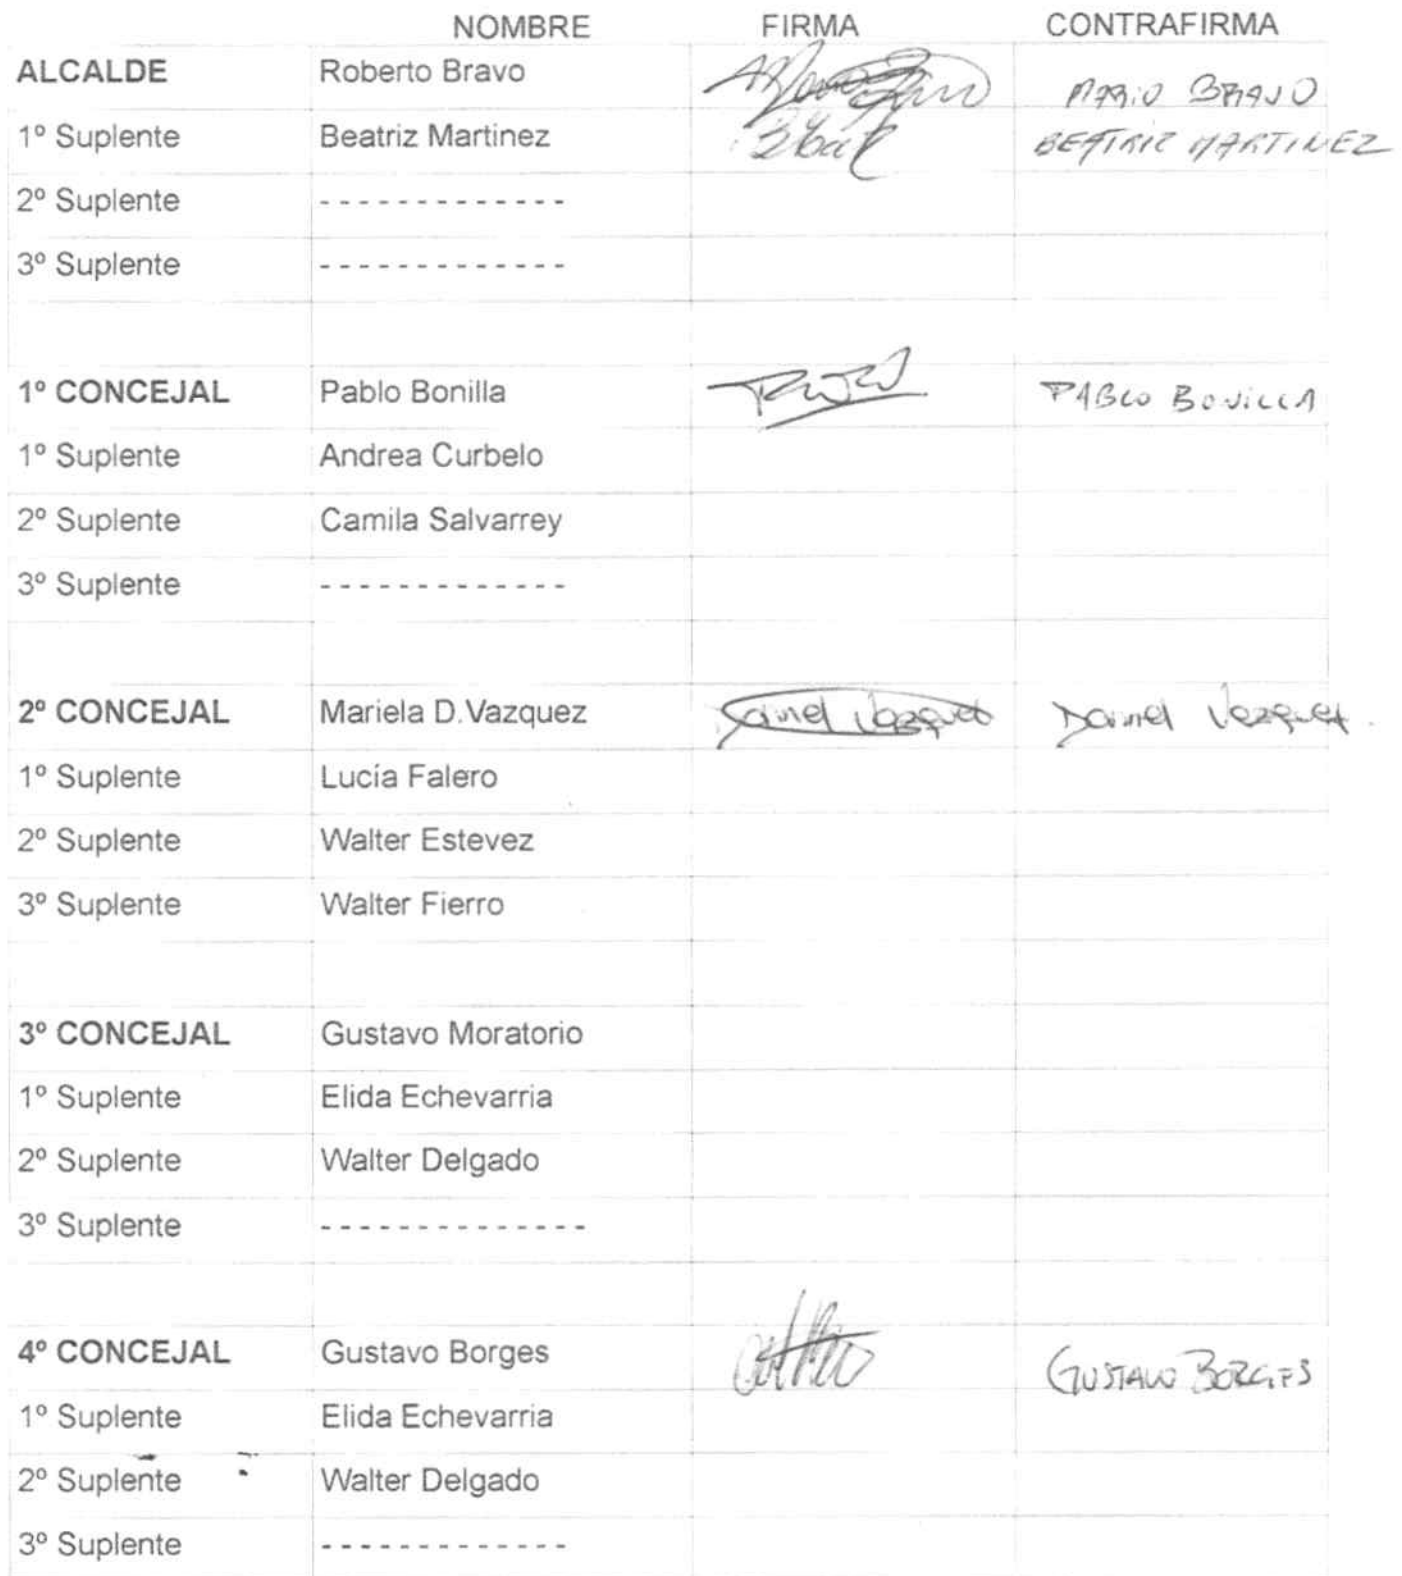 NOMBRE FIRMA CONTRAFIRMA
ALCALDE Roberto Bravo MARIO BRAVO
1º Suplente Beatriz Martinez BEATRIZ MARTINEZ
2º Suplente - - - - - - - - - - - - -
3º Suplente - - - - - - - - - - - - -
1º CONCEJAL Pablo Bonilla PABLO BONILLA
1º Suplente Andrea Curbelo
2º Suplente Camila Salvarrey
3º Suplente - - - - - - - - - - - - -
2º CONCEJAL Mariela D.Vazquez Daniel Vazquez Daniel Vazquez.
1º Suplente Lucía Falero
2º Suplente Walter Estevez
3º Suplente Walter Fierro
3º CONCEJAL Gustavo Moratorio
1º Suplente Elida Echevarria
2º Suplente Walter Delgado
3º Suplente - - - - - - - - - - - - - -
4º CONCEJAL Gustavo Borges GUSTAVO BORGES
1º Suplente Elida Echevarria
2º Suplente Walter Delgado
3º Suplente - - - - - - - - - - - - -